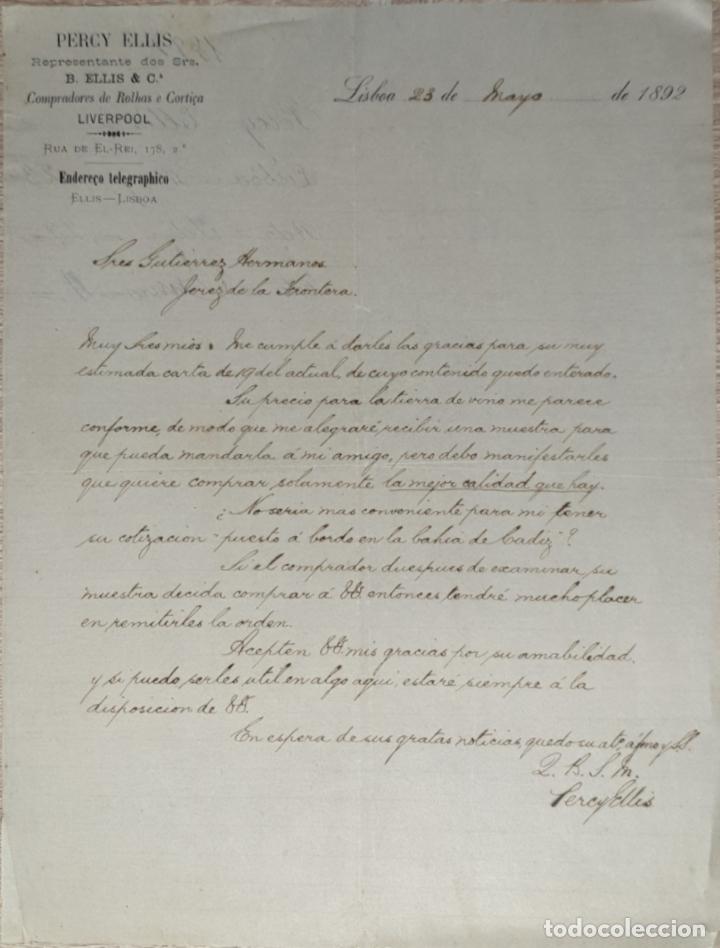 PERCY ELLIS
Representante dos Srs.
B. ELLIS & C.ª
Compradores de Rolhas e Cortiça
LIVERPOOL
RUA DE EL-REI, 178, 2.º
Endereço telegraphico
ELLIS—LISBOA
Lisboa 23 de Mayo de 1892
Sres Gutierrez Hermanos
Jerez de la Frontera.
Muy Sres mios: Me cumple á darles las gracias para su muy
estimada carta de 19 del actual, de cuyo contenido quedo enterado.
Su precio para la tierra de vino me parece
conforme, de modo que me alegraré recibir una muestra para
que pueda mandarla á mi amigo, pero debo manifestarles
que quiere comprar solamente la mejor calidad que hay.
¿No seria mas conveniente para mi tener
su cotizacion "puesto á bordo en la bahia de Cadiz"?
Si el comprador duespues de examinar su
muestra decida comprar á VV entonces tendré mucho placer
en remitirles la orden.
Acepten VV. mis gracias por su amabilidad,
y si puedo serles util en algo aqui, estaré siempre á la
disposicion de VV.
En espera de sus gratas noticias, quedo su ato, afmo y S.S.
Q. B. S. M.
Percy Ellis
todocoleccion